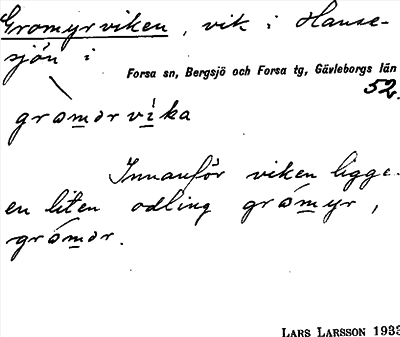 Gromyrviken, vik i Hanse-
sjön i
Forsa sn, Bergsjö och Forsa tg, Gävleborgs län
52.
gromǝrvika
Innanför viken ligge-
en liten odling grómyr,
grómǝr.
LARS LARSSON 1933